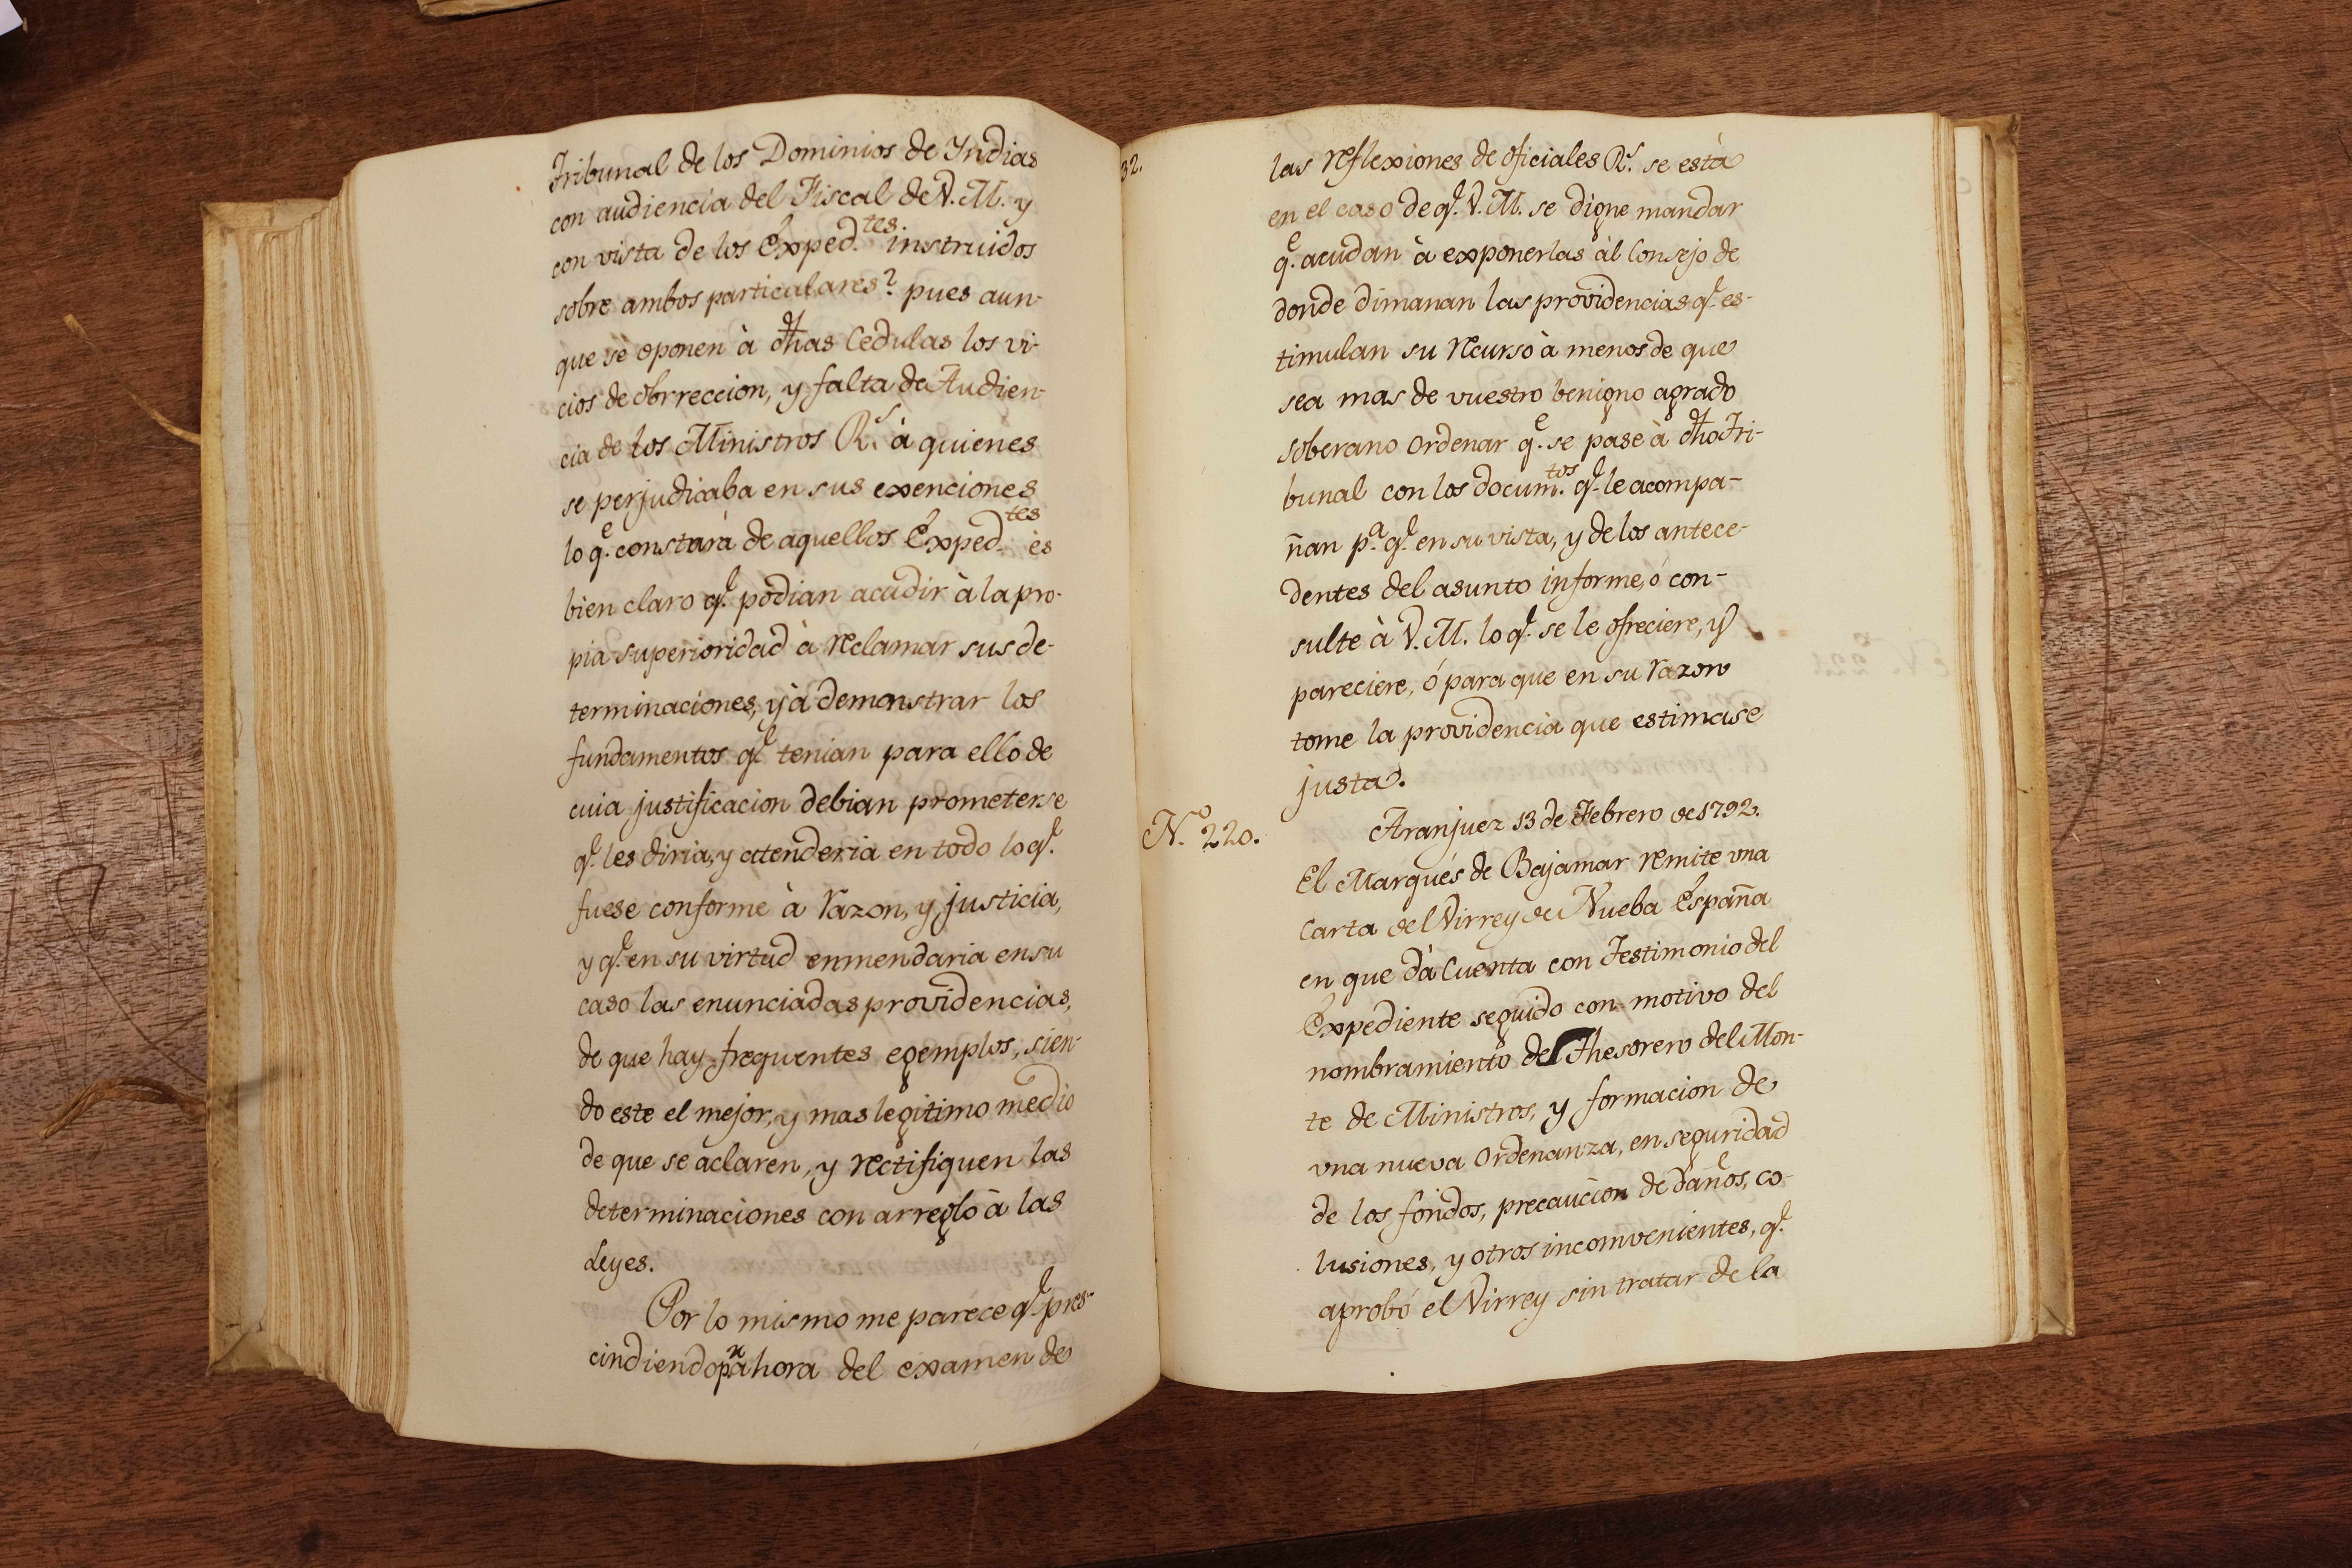 Tribunal de los Dominios de Yndias
con audiencia del Fiscal de V. M. y
con vista de los Exped.tes instruidos
sobre ambos particulares? pues aun-
que se oponen à dhas Cedulas los vi-
cios de obrreccion, y falta de Audien-
cia de los Ministros R.s à quienes
se perjudicaba en sus exenciones
lo q.e constará de aquellos Exped.tes ès
bien claro q.e podian acudir à la pro-
pia superioridad à reclamar sus de-
terminaciones, y à demonstrar los
fundamentos q.e tenian para ello de
cuia justificacion debian prometerse
q.e les diria, y atenderia en todo lo q.e
fuese conforme à razon, y justicia,
y q.e en su virtud enmendaria en su
caso las enunciadas providencias,
de que hay frequentes egemplos, sien-
do este el mejor, y mas legitimo medio
de que se aclaren, y rectifiquen las
determinaciones con arreglo à las
Leyes.
Por lo mismo me parece q.e pres-
cindiendo p.r ahora del examen de
32.
las reflexiones de oficiales R.s se està
en el caso de q.e V. M. se digne mandar
q.e acudan à exponerlas àl Consejo de
donde dimanan las providencias q.e es-
timulan su recurso à menos de que
sea mas de vuestro benigno agrado
soberano ordenar q.e se pase à dho Tri-
bunal con los docum.tos q.e le acompa-
ñan p.a q.e en su vista, y de los antece-
dentes del asunto informe, ó con-
sulte à V. M. lo q.e se le ofreciere, y
pareciere, ó para que en su razon
tome la providencia que estimase
justa.
Aranjuez 13 de Febrero de 1792.
N.o 220.
El Marqués de Bajamar remite vna
Carta del Virrey de Nueba España
en que dà Cuenta con Testimonio del
Expediente seguido con motivo del
nombramiento del Thesorero del Mon-
te de Ministros, y formacion de
vna nueva Ordenanza, en seguridad
de los fondos, precaucion de daños, co-
lusiones, y otros incomvenientes, q.e
aprobó el Virrey sin tratar de la